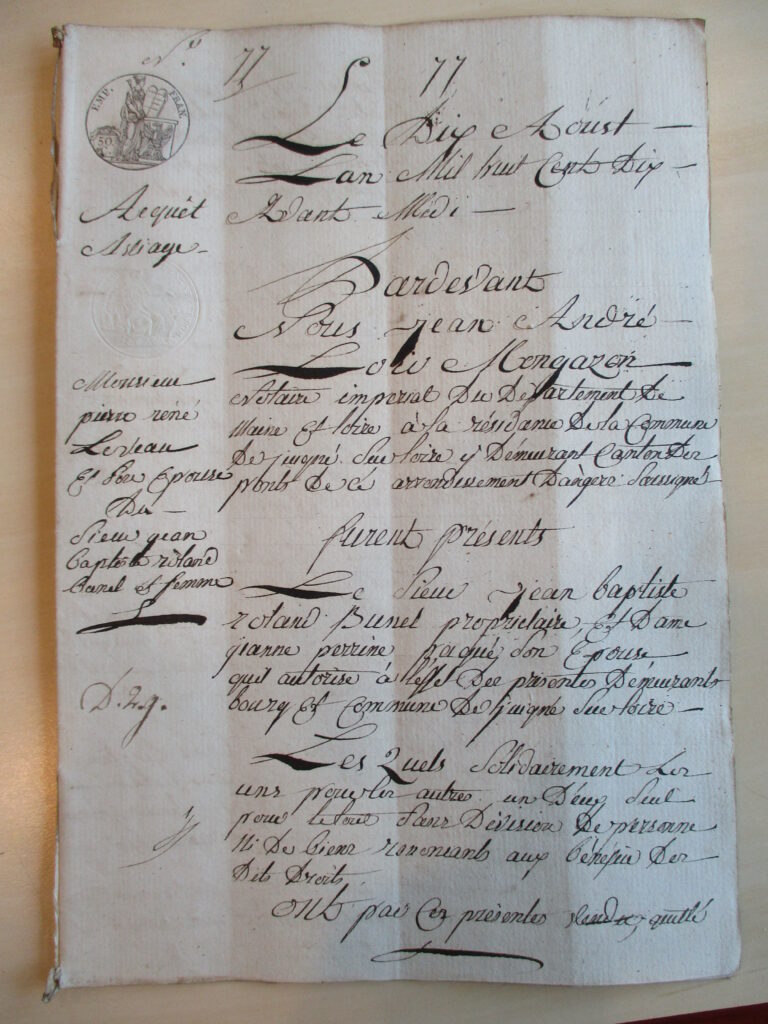 N.º 77 77
EMP. FRAN.
50
Le Dix Aoust
Lan Mil huit Cent Dix
Avant Midi
Acquêt
Pardevant
Nous jean André
Loüis Mongazon
Notaire imperial Du Département De
Maine Et loire à la résidance De la Commune
De juigné Sur loire y Demeurant Canton Des
ponts De Cé arrondissement Dangers Soussigné
Monsieur
pierre réné
Leveau
Et Son Epouse
Du
Sieur jean
Baptiste roland
Bunel et femme
furent présents
Le Sieur jean baptiste
roland Bunel propriétaire, Et Dame
jeanne perrine son Epouse
quil autorise à leffet Des presentes Demeurants
bourg Et Commune De juigné Sur loire
D. 2 9.
Les Quels Solidairement Les
uns pour les autres un Deux Seul
pour le tout Sans Division De personne
Ni De biens renoncants aux bénéfice Des
Dits Droits.
Ont par Ces présentes Vendu, quitté